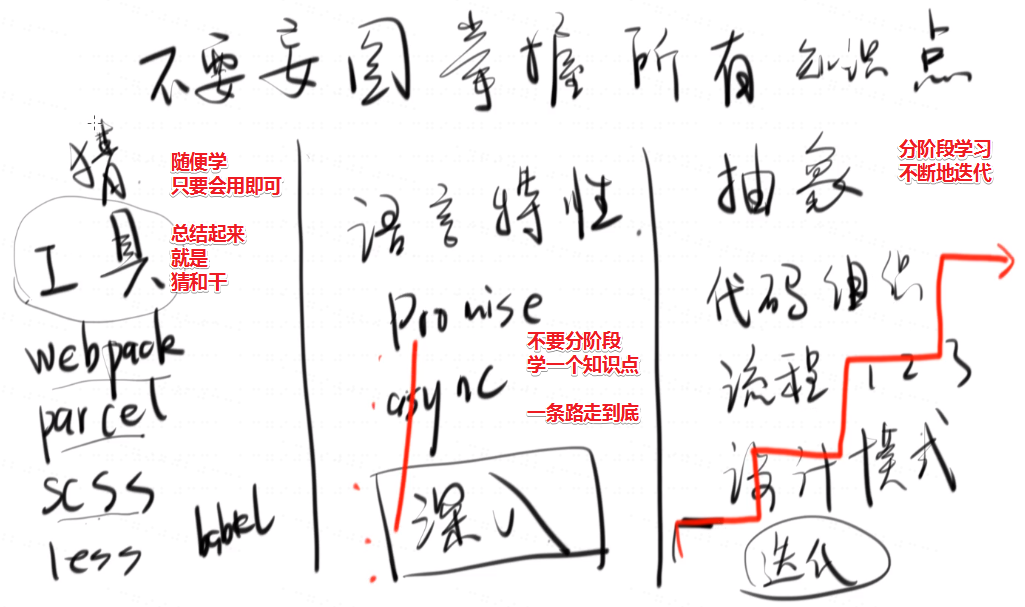 不要妄图掌握所有知识点
猜
随便学
只要会用即可
工具
总结起来
就是
猜和干
webpack
parcel
scss
less
babel
语言特性
promise
async
不要分阶段
学一个知识点
一条路走到底
深入
抽象
分阶段学习
不断地迭代
代码组织
流程 1 2 3
设计模式
迭代